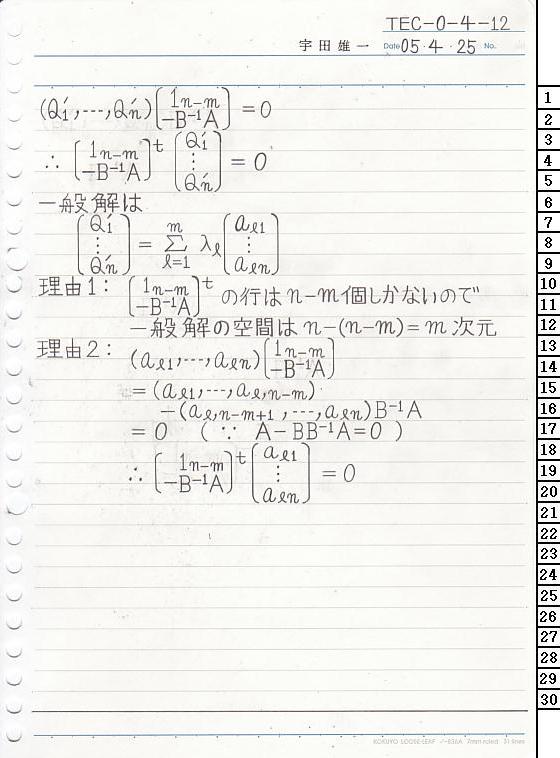 TEC-0-4-12
宇田雄一 Date 05・4・25 No.
(Q₁′,---,Qₙ′)(1ₙ₋ₘ / -B⁻¹A) = 0
∴ (1ₙ₋ₘ / -B⁻¹A)ᵗ (Q₁′ ⋮ Qₙ′) = 0
一般解は
(Q₁′ ⋮ Qₙ′) = Σ_{ℓ=1}^{m} λ_ℓ (a_{ℓ1} ⋮ a_{ℓn})
理由1: (1ₙ₋ₘ / -B⁻¹A)ᵗ の行は n-m 個しかないので
一般解の空間は n-(n-m)=m 次元
理由2: (a_{ℓ1},---,a_{ℓn})(1ₙ₋ₘ / -B⁻¹A)
= (a_{ℓ1},---,a_{ℓ,n-m})
-(a_{ℓ,n-m+1},---,a_{ℓn})B⁻¹A
= 0 (∵ A-BB⁻¹A=0)
∴ (1ₙ₋ₘ / -B⁻¹A)ᵗ (a_{ℓ1} ⋮ a_{ℓn}) = 0
1
2
3
4
5
6
7
8
9
10
11
12
13
14
15
16
17
18
19
20
21
22
23
24
25
26
27
28
29
30
KOKUYO LOOSE-LEAF ノ-836A 7mm ruled 31 lines